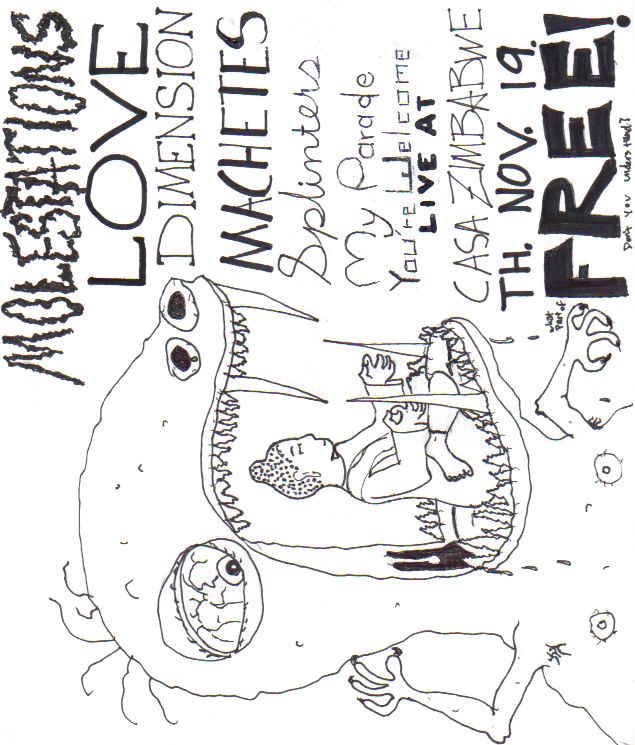 MOLESTATIONS
LOVE
DIMENSION
MACHETES
Splinters
My Parade
You're Welcome
LIVE AT
CASA ZIMBABWE
TH. NOV. 19.
what part of
FREE!
Don't you understand?